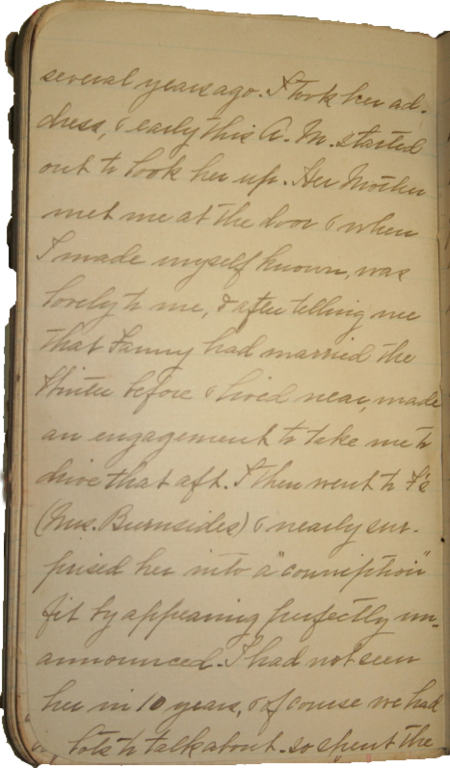 several years ago. I took her ad-
dress, & early this A.M. started
out to look her up. Her Mother
met me at the door & when
I made myself known, was
lovely to me, & after telling me
that Fanny had married the
Winter before & lived near, made
an engagement to take me to
drive that aft. I then went to F's
(Mrs. Burnsides) & nearly sur-
prised her into a "conniption"
fit by appearing perfectly un-
announced. I had not seen
her in 10 years, & of course we had
lots to talk about - so spent the